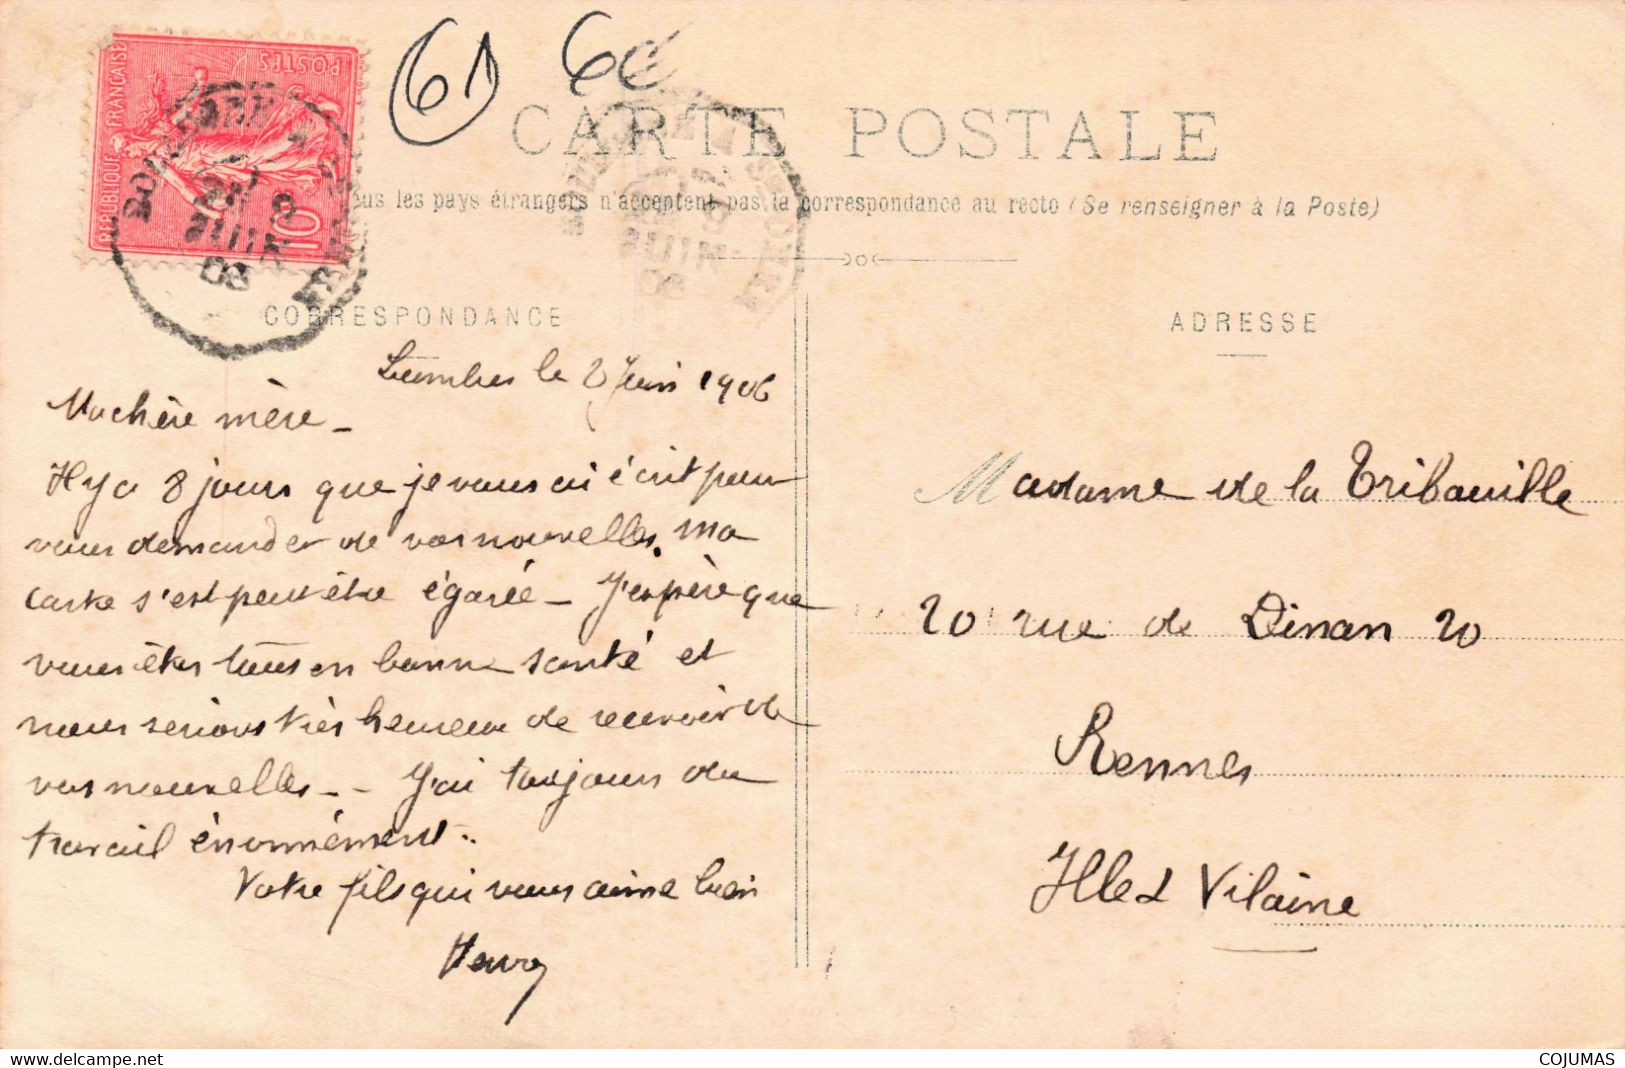 REPUBLIQUE FRANÇAISE
POSTES
10
61
6€
CARTE POSTALE
les pays étrangers n'acceptent pas la correspondance au recto (Se renseigner à la Poste)
CORRESPONDANCE
ADRESSE
Lumbres le 2 Juin 1906
Ma chère mère -
Il y a 8 jours que je vous ai écrit pour
vous demander de vos nouvelles. Ma
carte s'est peut être égarée - J'espère que
vous êtes tous en bonne santé et
nous serions très heureux de recevoir de
vos nouvelles - - J'ai toujours du
travail énormément..
Votre fils qui vous aime bien
Henry
Madame de la Tribouille
20 rue de Dinan 20
Rennes
Ille & Vilaine
COJUMAS
delcampe.net